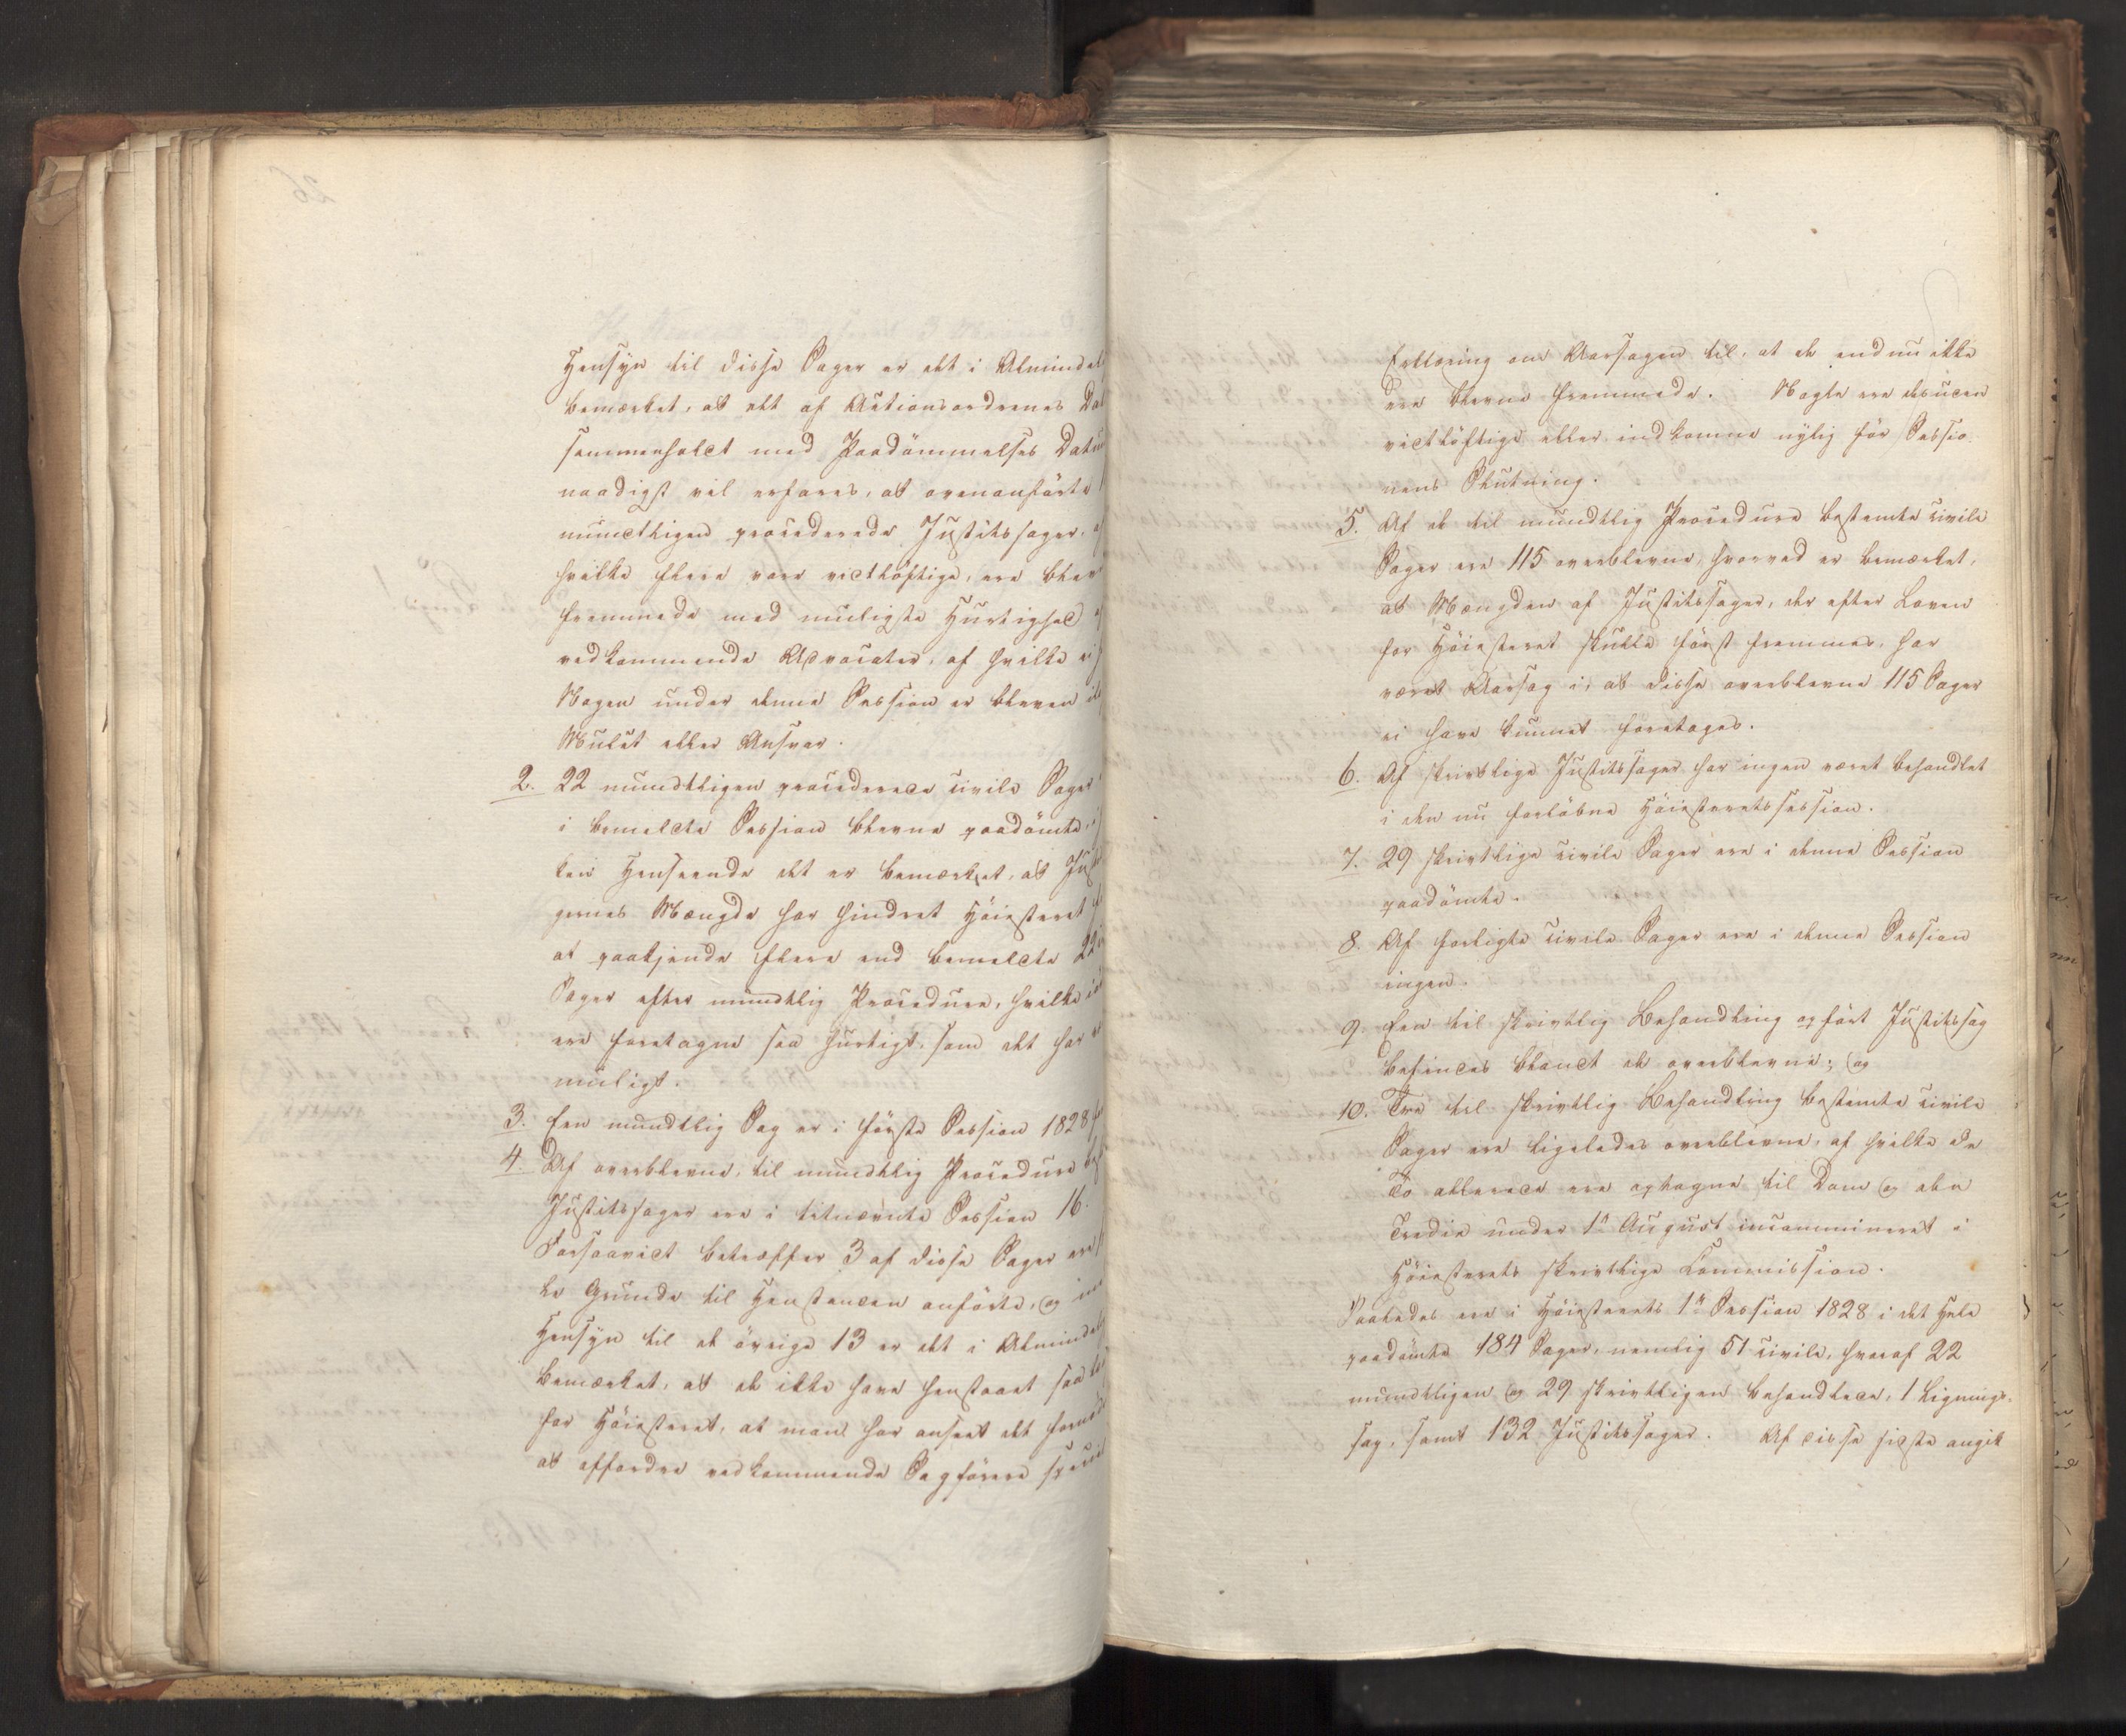 Hensyn til disse Sager er det i Almindel
bemærket, at det af Actionsordrenes Dat
sammenholdt med Paadömmelses Datum
naadigst vil erfares, at ovenanförte
mundtligen procederede Justitssager, af
hvilke flere vare vidtlöftige, ere blevne
fremmede med muligste Hurtighed af
vedkommende Advocater, af hvilke ei
Nogen under denne Session er bleven
Mulct eller Ansvar.
2. 22 mundtligen procederede civile Sager
i bemeldte Session blevne paadömte,
ken Henseende det er bemærket, at Just
gernes Mængde har hindret Höiesteret
at paakjende flere end bemeldte 22
Sager efter mundtlig Procedure, hvilke
ere foretagne saa hurtigt, som det har
muligt.
3. Een mundtlig Sag er i förste Session 1828
4. Af overblevne, til mundtlig Procedure best
Justitssager ere i titnævnte Session 16.
Forsaavidt betræffer 3 af disse Sager ere
le Grunde til Henstanden anförte, og
Hensyn til de övrige 13 er det i Almindel
bemærket, at de ikke have henstaaet saa
for Höiesteret, at man har anseet det fornöd
at affordre vedkommende Sagförere speciel
Erklæring om Aarsagen til, at de endnu ikke
ere blevne fremmede. Nogle ere desuden
vidtlöftige eller indkomne nylig för Sessio-
nens Slutning.
5. Af de til mundtlig Procedure bestemte civile
Sager ere 115 overblevne, hvorved er bemærket,
at Mængden af Justitssager, der efter Loven
for Höiesteret skulle först fremmes, har
været Aarsag i, at disse overblevne 115 Sager
ei have kunnet foretages.
6. Af skrivtlige Justitssager har ingen været behandlet
i den nu forlöbne Höiesteretssession.
7. 29 skrivtlige civile Sager ere i denne Session
paadömte.
8. Af forligte civile Sager ere i denne Session
ingen.
9. Een til skrivtlig Behandling opfört Justitssag
befindes blandt de overblevne; og
10. Tre til skrivtlig Behandling bestemte civile
Sager ere ligeledes overblevne, af hvilke de
To allerede ere optagne til Dom og den
Tredie under 1ste August incammineret i
Höiesterets skrivtlige Commission.
Saaledes ere i Höiesterets 1ste Session 1828 i det Hele
paadömte 184 Sager, nemlig 51 civile, hvoraf 22
mundtligen og 29 skrivtligen behandlede, 1 Lignings-
sag, samt 132 Justitssager. Af disse sidste angik